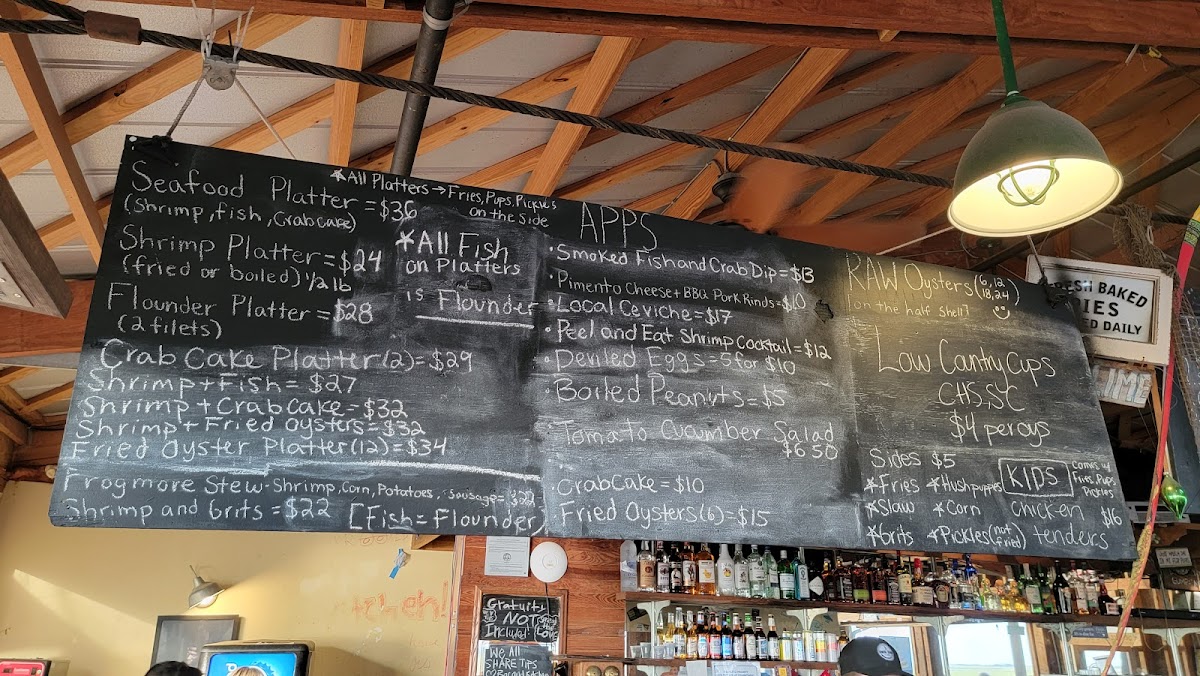 Seafood Platter = $36
(Shrimp, fish, Crab cake)
Shrimp Platter = $24
(fried or boiled) 1/2 lb
Flounder Platter = $28
(2 filets)
Crab Cake Platter (2) = $29
Shrimp + Fish = $27
Shrimp + Crab Cake = $32
Shrimp + Fried Oysters = $32
Fried Oyster Platter (12) = $34
Frogmore Stew - Shrimp, Corn, Potatoes, Sausage = $22
Shrimp and Grits = $22 [Fish = Flounder]
*All Platters → Fries, Pups, Pickles
on the Side
*All Fish
on Platters
is Flounder
APPS
• Smoked Fish and Crab Dip = $13
• Pimento Cheese + BBQ Pork Rinds = $10
• Local Ceviche = $17
• Peel and Eat Shrimp Cocktail = $12
• Deviled Eggs = 5 for $10
• Boiled Peanuts = $5
• Tomato Cucumber Salad
$6.50
• Crab Cake = $10
• Fried Oysters (6) = $15
RAW Oysters (6, 12
18, 24)
[on the half shell]
Low Cantry Cups
CHS, SC
$4 per oys
Sides $5
*Fries *Hushpuppies
*Slaw *Corn
*Grits *Pickles (not fried)
KIDS
Comes w/
Fries, Pups,
Pickles
Chicken $16
tenders
FRESH BAKED
PIES
DAILY
Gratuity
NOT
Included!
We All
SHARE TIPS